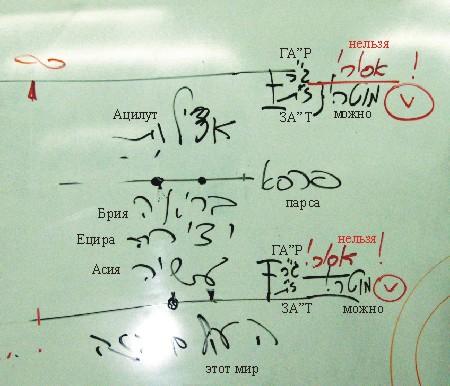 ∞
ГА"Р нельзя
ג"ר אסור! !
ז"ת מותר! V
ЗА"Т можно
Ацилут
אצילות
פרסא
парса
Брия בריאה
Ецира יצירה
Асия עשיה
ГА"Р нельзя
ג"ר אסור! !
ז"ת מותר! V
ЗА"Т можно
העולם הזה
этот мир